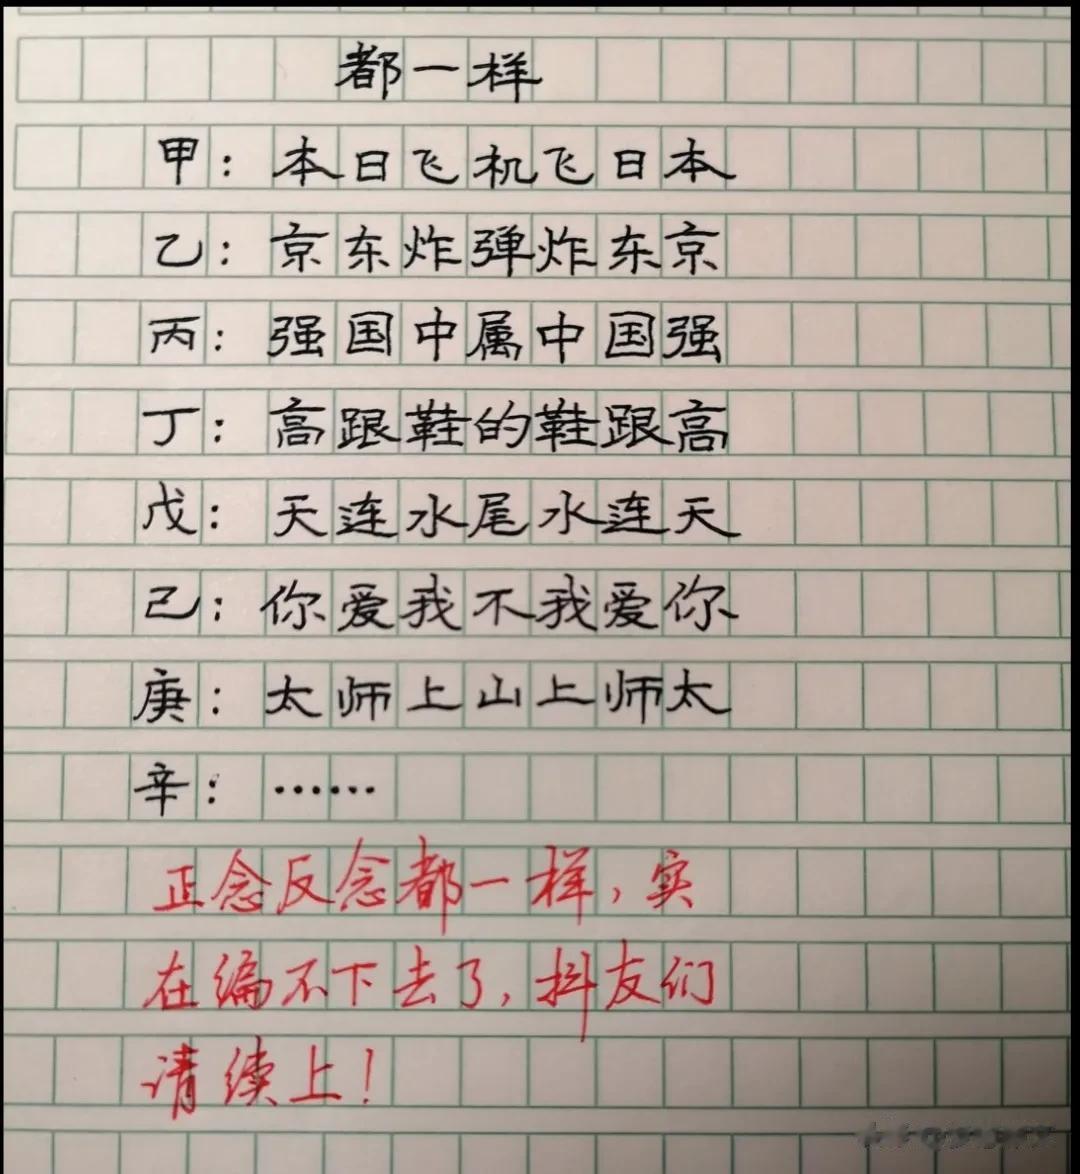 都一样
甲：本日飞机飞日本
乙：京东炸弹炸东京
丙：强国中属中国强
丁：高跟鞋的鞋跟高
戊：天连水尾水连天
己：你爱我不我爱你
庚：太师上山上师太
辛：……
正念反念都一样，实
在编不下去了，抖友们
请续上！